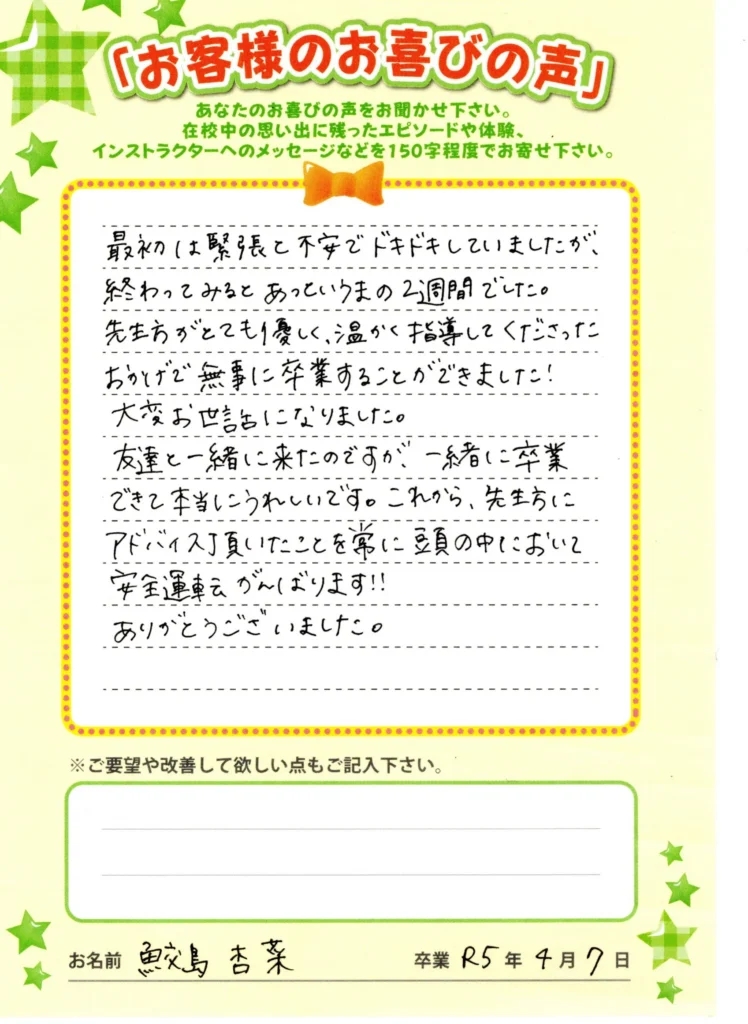 「お客様のお喜びの声」
あなたのお喜びの声をお聞かせ下さい。
在校中の思い出に残ったエピソードや体験、
インストラクターへのメッセージなどを150字程度でお寄せ下さい。
最初は緊張と不安でドキドキしていましたが、
終わってみるとあっというまの2週間でした。
先生方がとても優しく、温かく指導してくださった
おかげで無事に卒業することができました!
大変お世話になりました。
友達と一緒に来たのですが、一緒に卒業
できて本当にうれしいです。これから、先生方に
アドバイス頂いたことを常に頭の中において
安全運転がんばります!!
ありがとうございました。
※ご要望や改善して欲しい点もご記入下さい。
お名前 鮫島 杏菜 卒業 R5 年 4 月 7 日